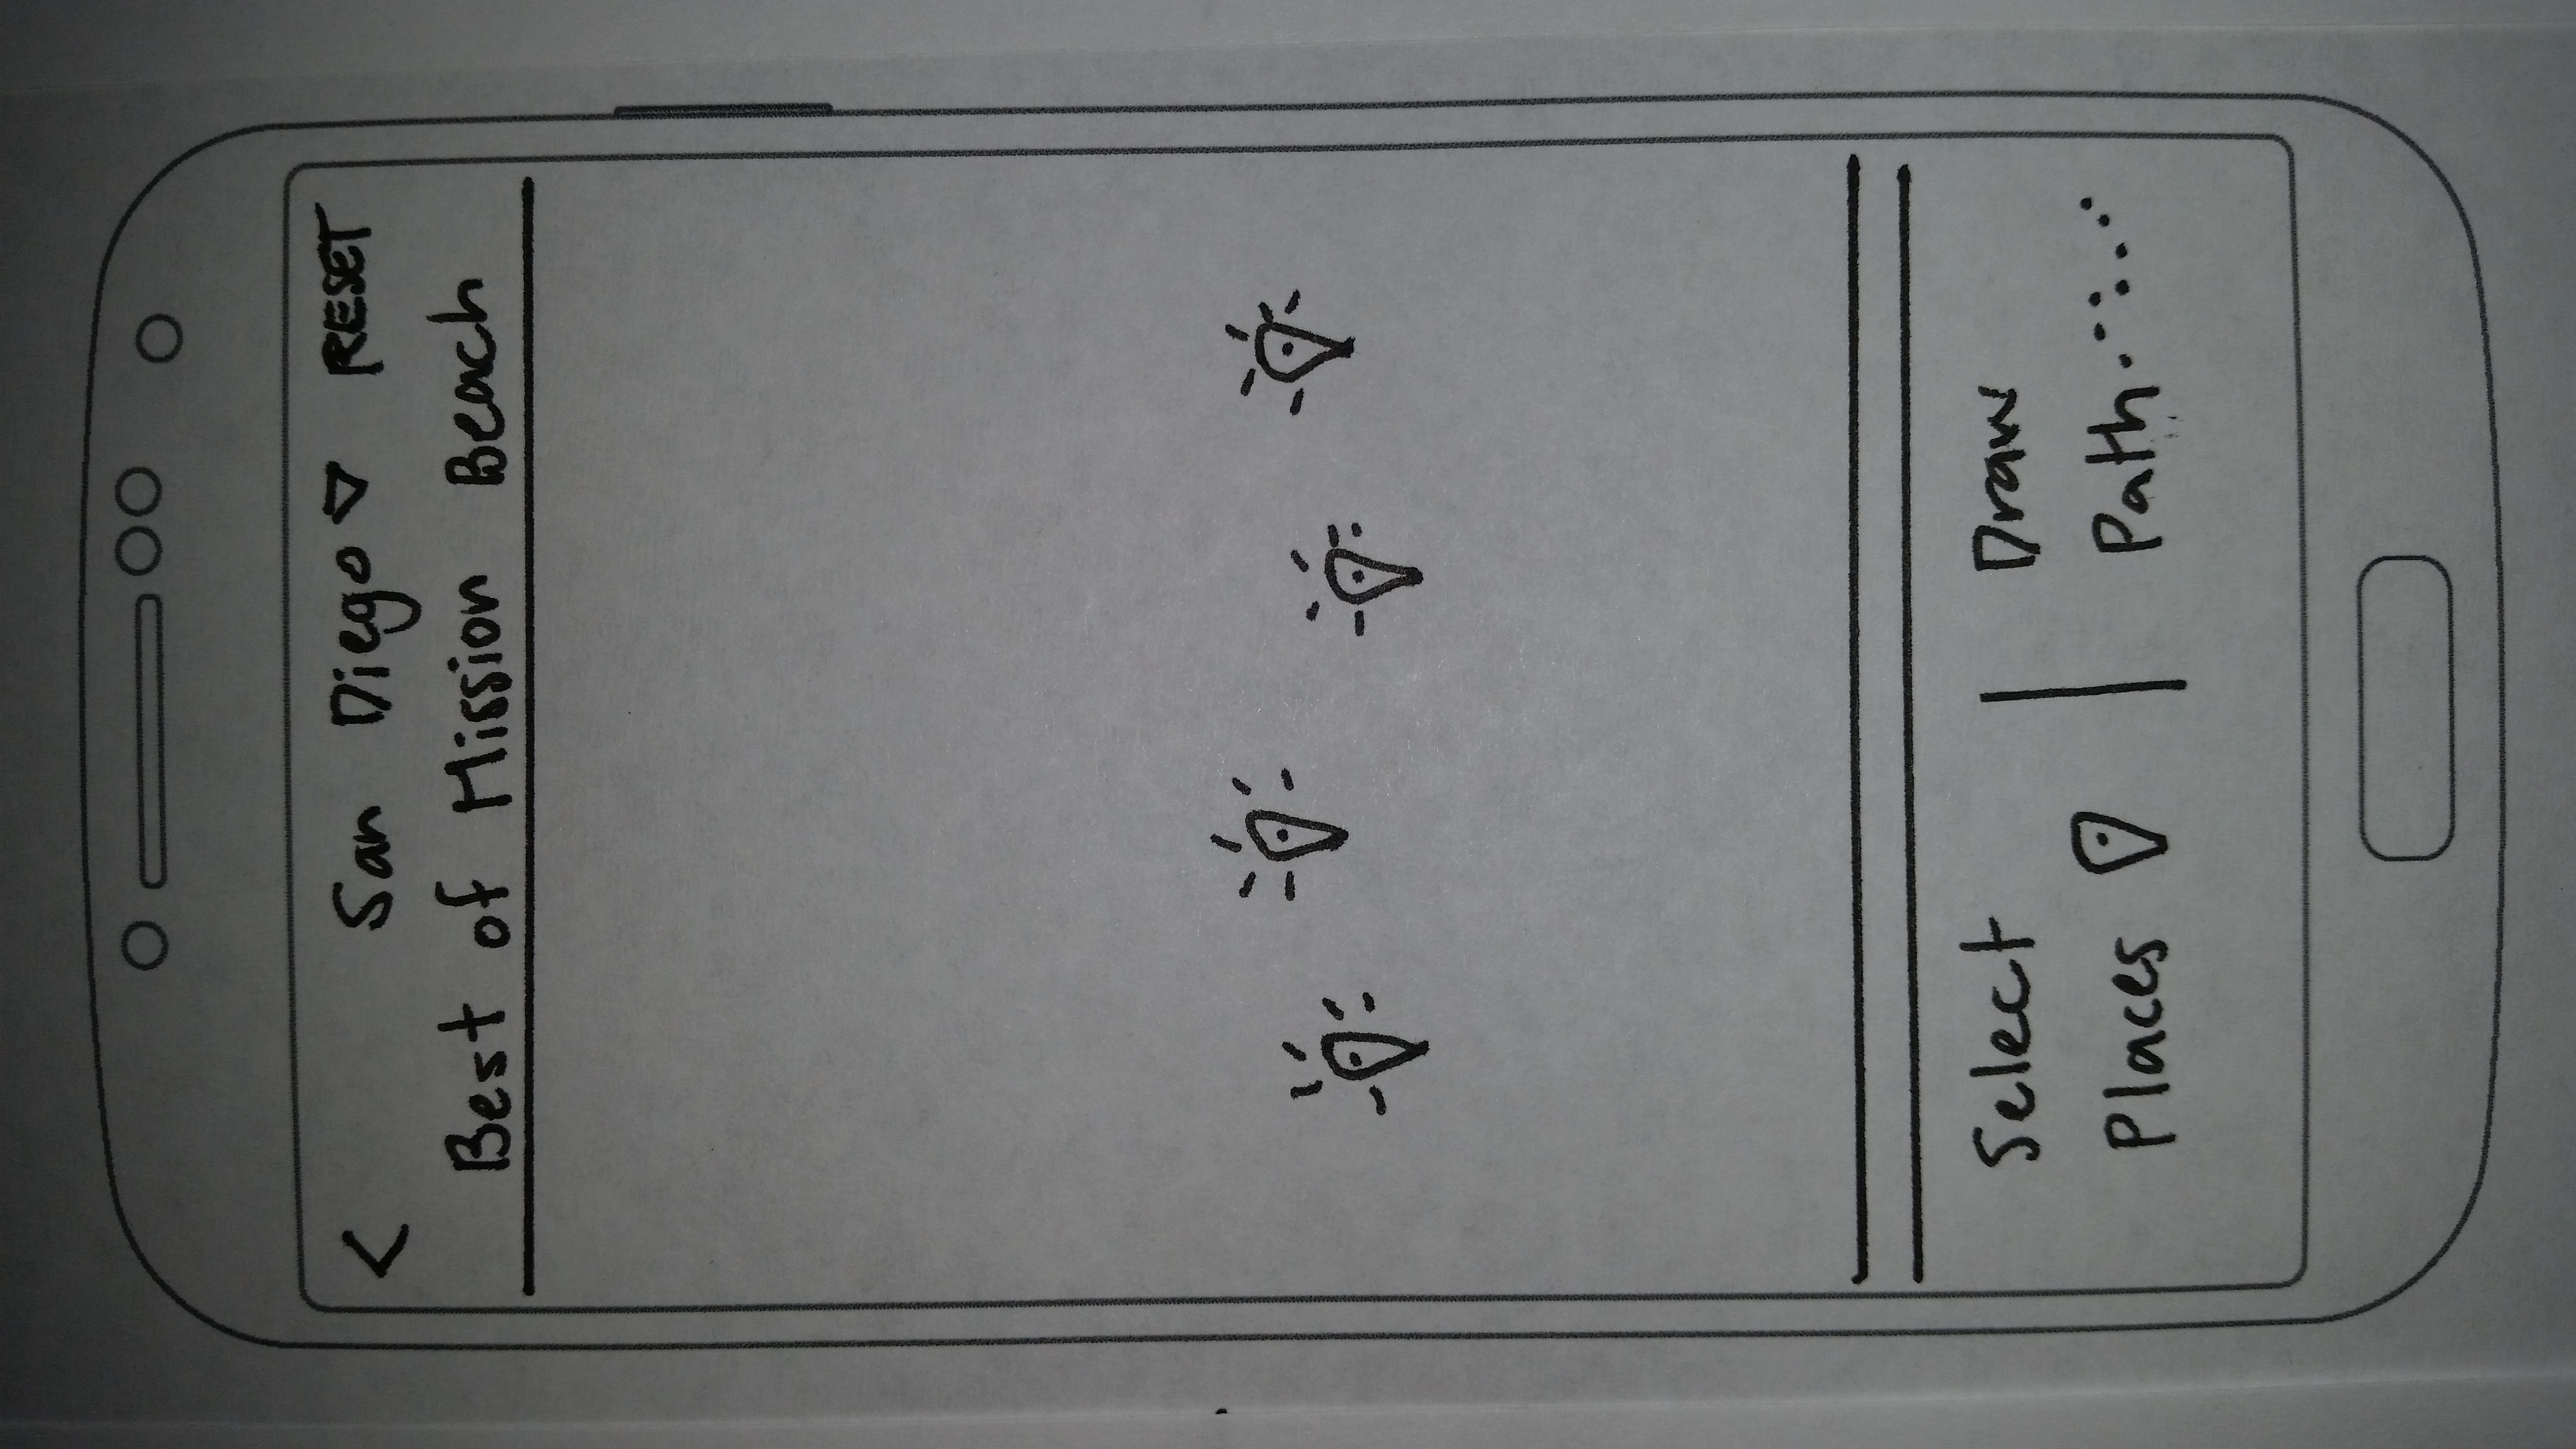 < San Diego ▽ RESET
Best of Mission Beach
Select
Places
Draw
Path